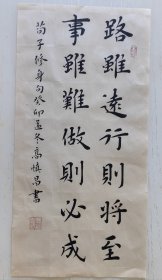 路雖遠行則將至
事雖難做則必成
荀子修身句癸卯孟冬高慎昌書